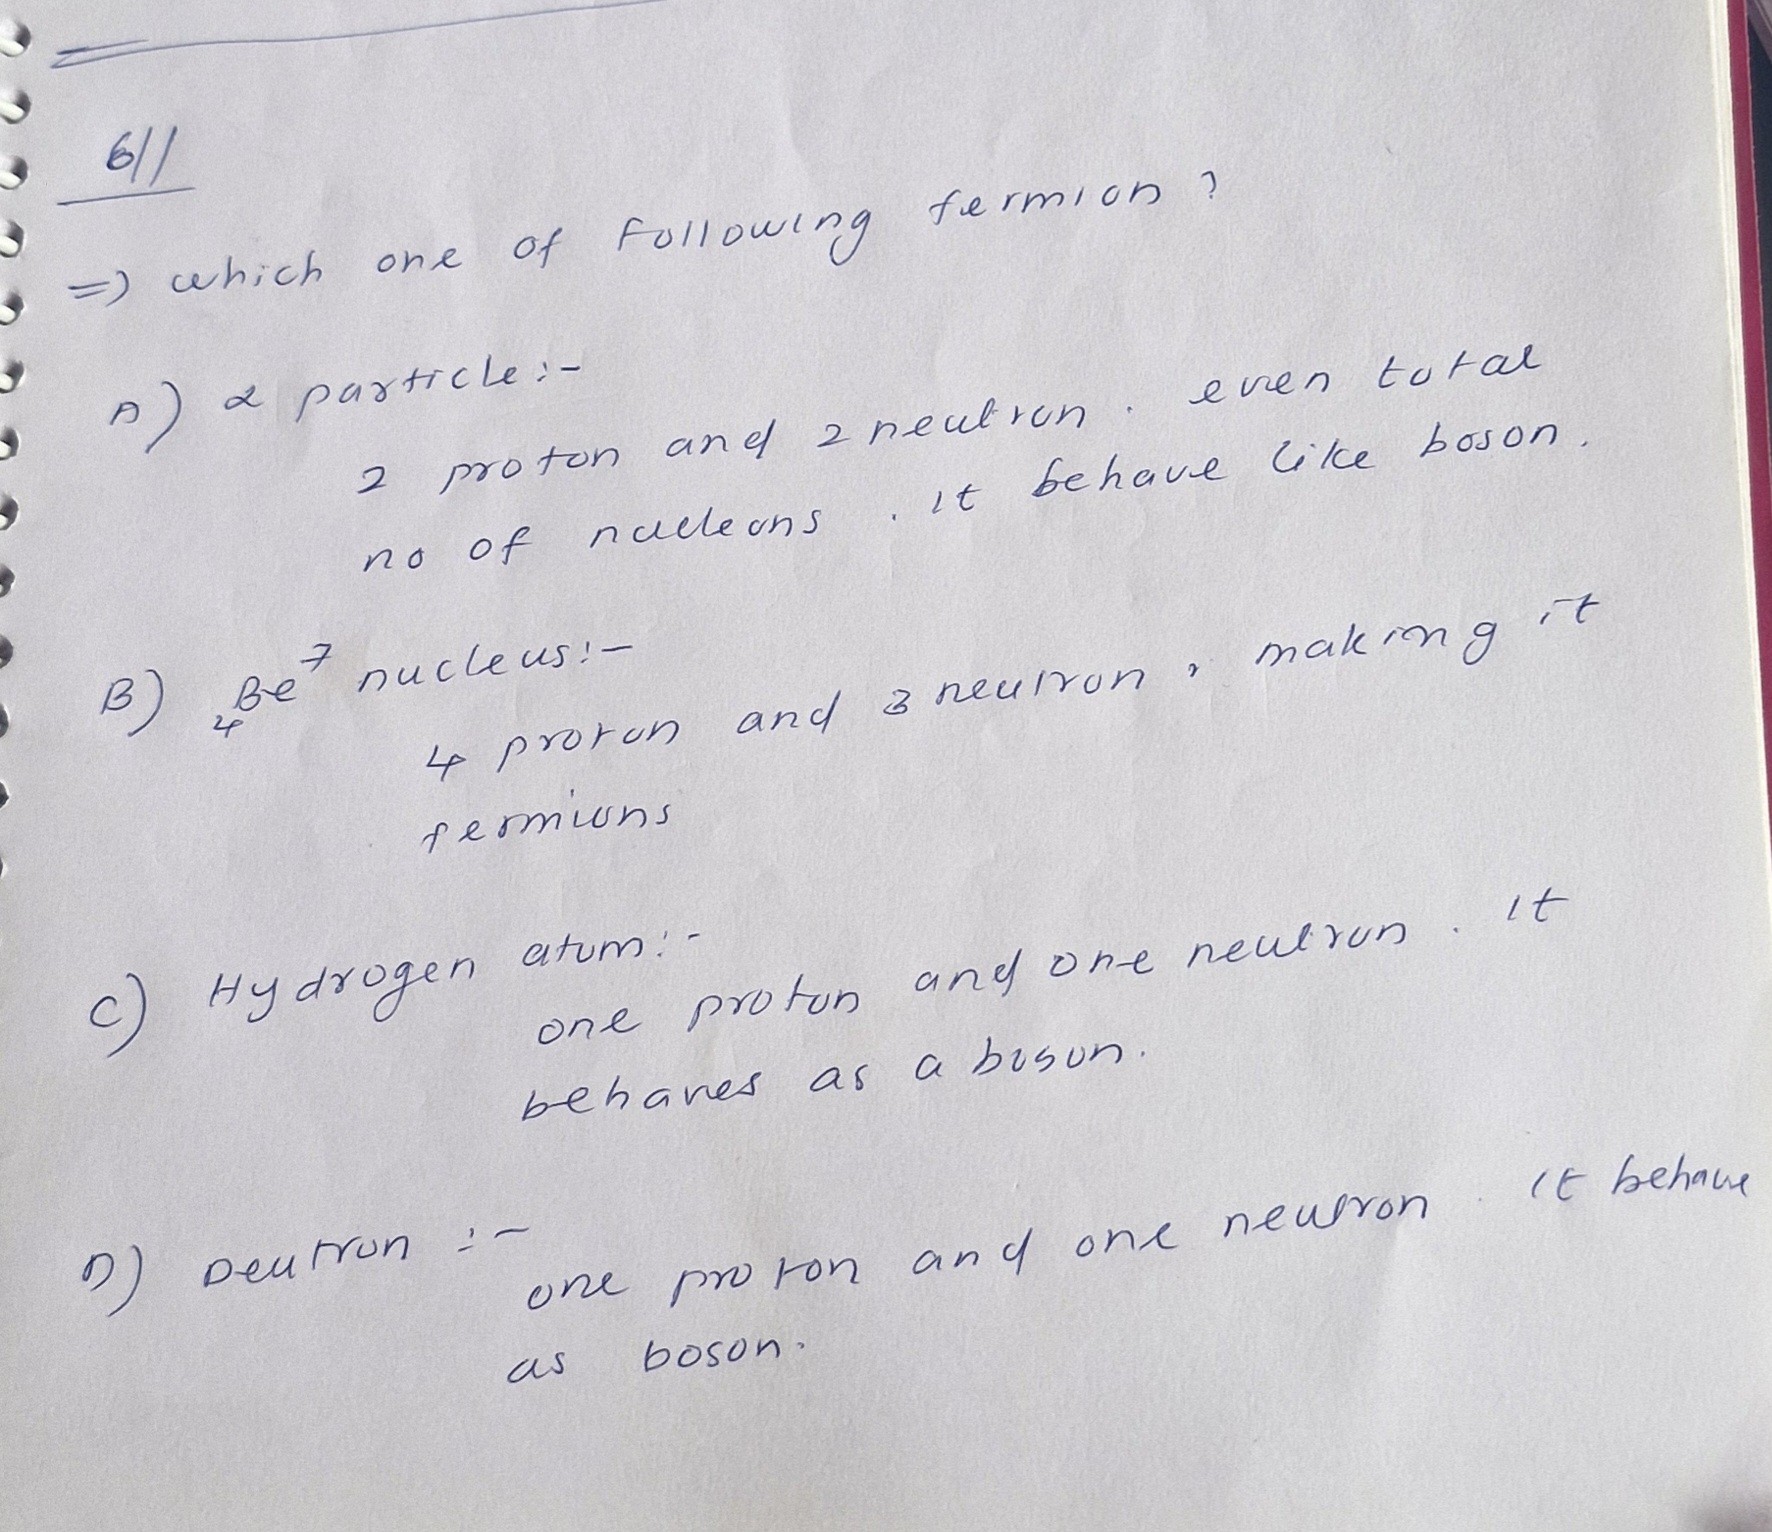 6//
=) which one of Following fermion ?
A) α particle :-
2 proton and 2 neutron . even total
no of nucleons . it behave like boson .
B) ₄Be⁷ nucleus :-
4 proton and 3 neutron , making it
fermions
C) Hydrogen atom :-
one proton and one neutron . It
behaves as a boson .
D) Deutron :-
one proton and one neutron . It behave
as boson .